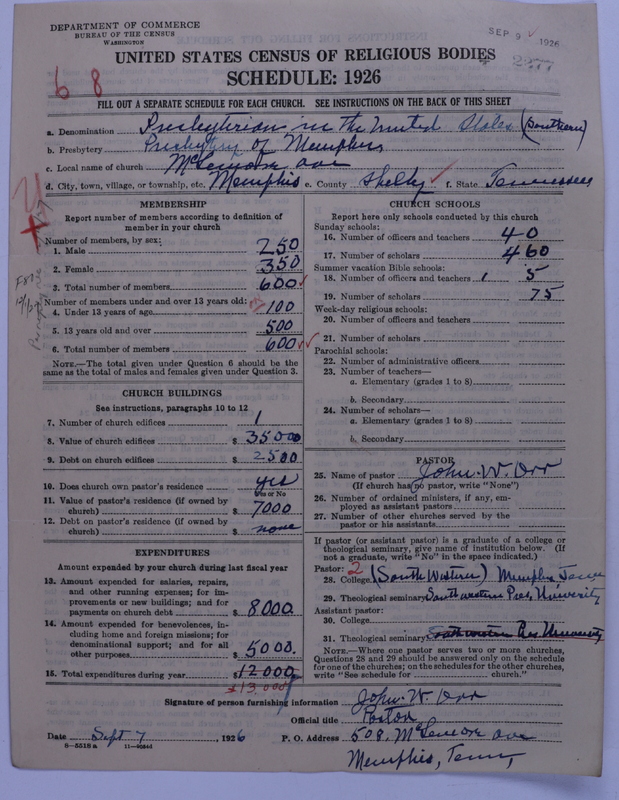 DEPARTMENT OF COMMERCE
BUREAU OF THE CENSUS
WASHINGTON
SEP 9 1926
UNITED STATES CENSUS OF RELIGIOUS BODIES
SCHEDULE: 1926
6 8
FILL OUT A SEPARATE SCHEDULE FOR EACH CHURCH. SEE INSTRUCTIONS ON THE BACK OF THIS SHEET
a. Denomination Presbyterian in the United States (Southern)
b. Presbytery Presbytery of Memphis
c. Local name of church McLemore ave
d. City, town, village, or township, etc. Memphis e. County Shelby f. State Tennessee
MEMBERSHIP
Report number of members according to definition of
member in your church
Number of members, by sex:
1. Male 250
2. Female 350
3. Total number of members 600
Number of members under and over 13 years old:
4. Under 13 years of age 100
5. 13 years old and over 500
6. Total number of members 600
NOTE.—The total given under Question 6 should be the
same as the total of males and females given under Question 3.
CHURCH BUILDINGS
See instructions, paragraphs 10 to 12
7. Number of church edifices 1
8. Value of church edifices $ 35000
9. Debt on church edifices $ 2500
10. Does church own pastor's residence yes
Yes or No
11. Value of pastor's residence (if owned by
church) $ 7000
12. Debt on pastor's residence (if owned by
church) $ none
EXPENDITURES
Amount expended by your church during last fiscal year
13. Amount expended for salaries, repairs,
and other running expenses; for im-
provements or new buildings; and for
payments on church debt $ 8000
14. Amount expended for benevolences, in-
cluding home and foreign missions; for
denominational support; and for all
other purposes $ 5000.
15. Total expenditures during year $ 12000
13000
CHURCH SCHOOLS
Report here only schools conducted by this church
Sunday schools:
16. Number of officers and teachers 40
17. Number of scholars 460
Summer vacation Bible schools:
18. Number of officers and teachers 5
19. Number of scholars 75
Week-day religious schools:
20. Number of officers and teachers
21. Number of scholars
Parochial schools:
22. Number of administrative officers
23. Number of teachers—
a. Elementary (grades 1 to 8)
b. Secondary
24. Number of scholars—
a. Elementary (grades 1 to 8)
b. Secondary
PASTOR
25. Name of pastor John. W. Orr
(If church has no pastor, write "None")
26. Number of ordained ministers, if any, em-
ployed as assistant pastors
27. Number of other churches served by the
pastor or his assistants
If pastor (or assistant pastor) is a graduate of a college or
theological seminary, give name of institution below. (If
not a graduate, write "No" in the space indicated.)
Pastor: 2
28. College (South Western) Memphis, Tenn
29. Theological seminary Southwestern Pres. University
Assistant pastor:
30. College
31. Theological seminary Southwestern Pres University
NOTE.—Where one pastor serves two or more churches,
Questions 28 and 29 should be answered only on the schedule
for one of the churches; on the schedules for the other churches,
write "See schedule for church."
Signature of person furnishing information John. W. Orr
Official title Pastor
Date Sept 7, 1926 P. O. Address 508, McLemore ave
Memphis, Tenn,
8—5518 a